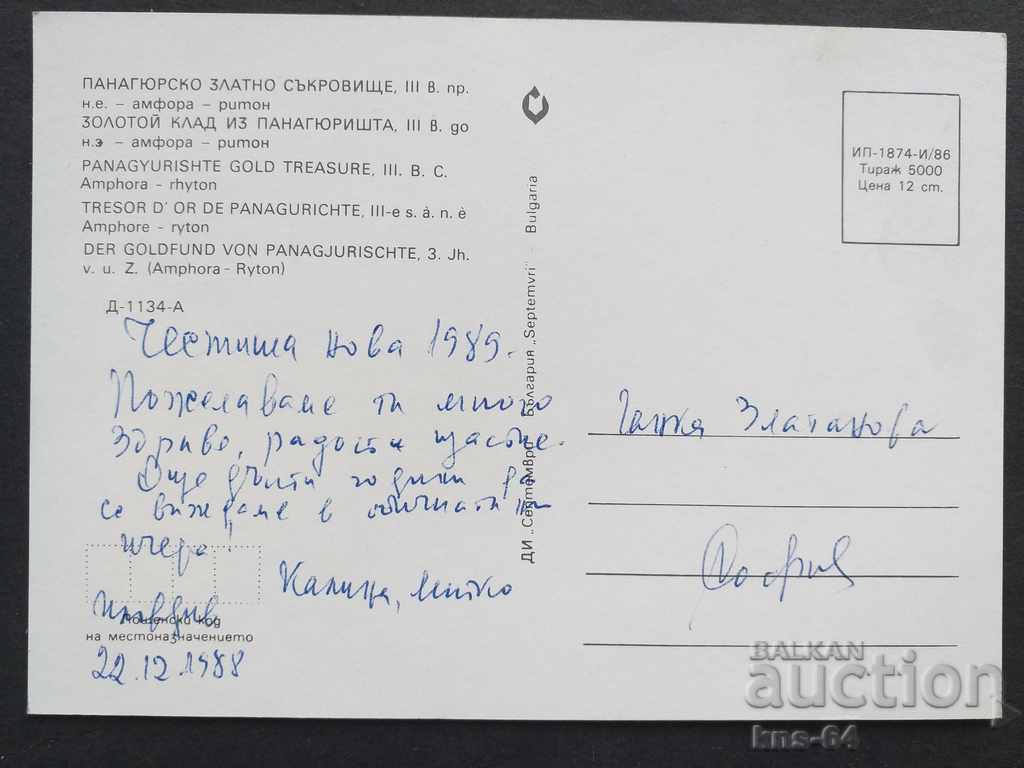 ПАНАГЮРСКО ЗЛАТНО СЪКРОВИЩЕ, III в. пр.
н.е. – амфора – ритон
ЗОЛОТОЙ КЛАД ИЗ ПАНАГЮРИШТА, III в. до
н.э – амфора – ритон
PANAGYURISHTE GOLD TREASURE, III. B. C.
Amphora - rhyton
TRESOR D' OR DE PANAGURICHTE, III-e s. à. n. è
Amphore - ryton
DER GOLDFUND VON PANAGJURISCHTE, 3. Jh.
v. u. Z. (Amphora - Ryton)
Д-1134-А
Честита нова 1989.
Пожелаваме ти много
здраве, радост и щастие.
Още дълги години да
се виждаме в обичната ни
Калица, Митко
Пловдив
22.12.1988
Пощенски код
на местоназначението
ДИ „Септември" България „Septemvri" - Bulgaria
ИП-1874-И/86
Тираж 5000
Цена 12 ст.
Златанова
София
BALKAN
auction
kns-64